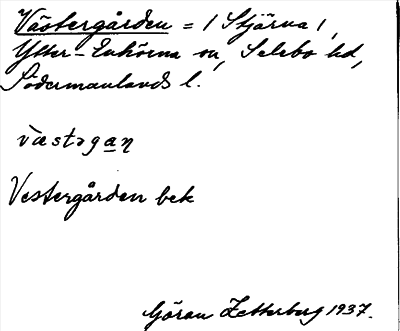 Västergården = / Stjärna /,
Ytter-Enhörna sn, Selebo hd,
Södermanlands l.
væstəgan
Vestergården bek
Göran Zetterberg 1937.